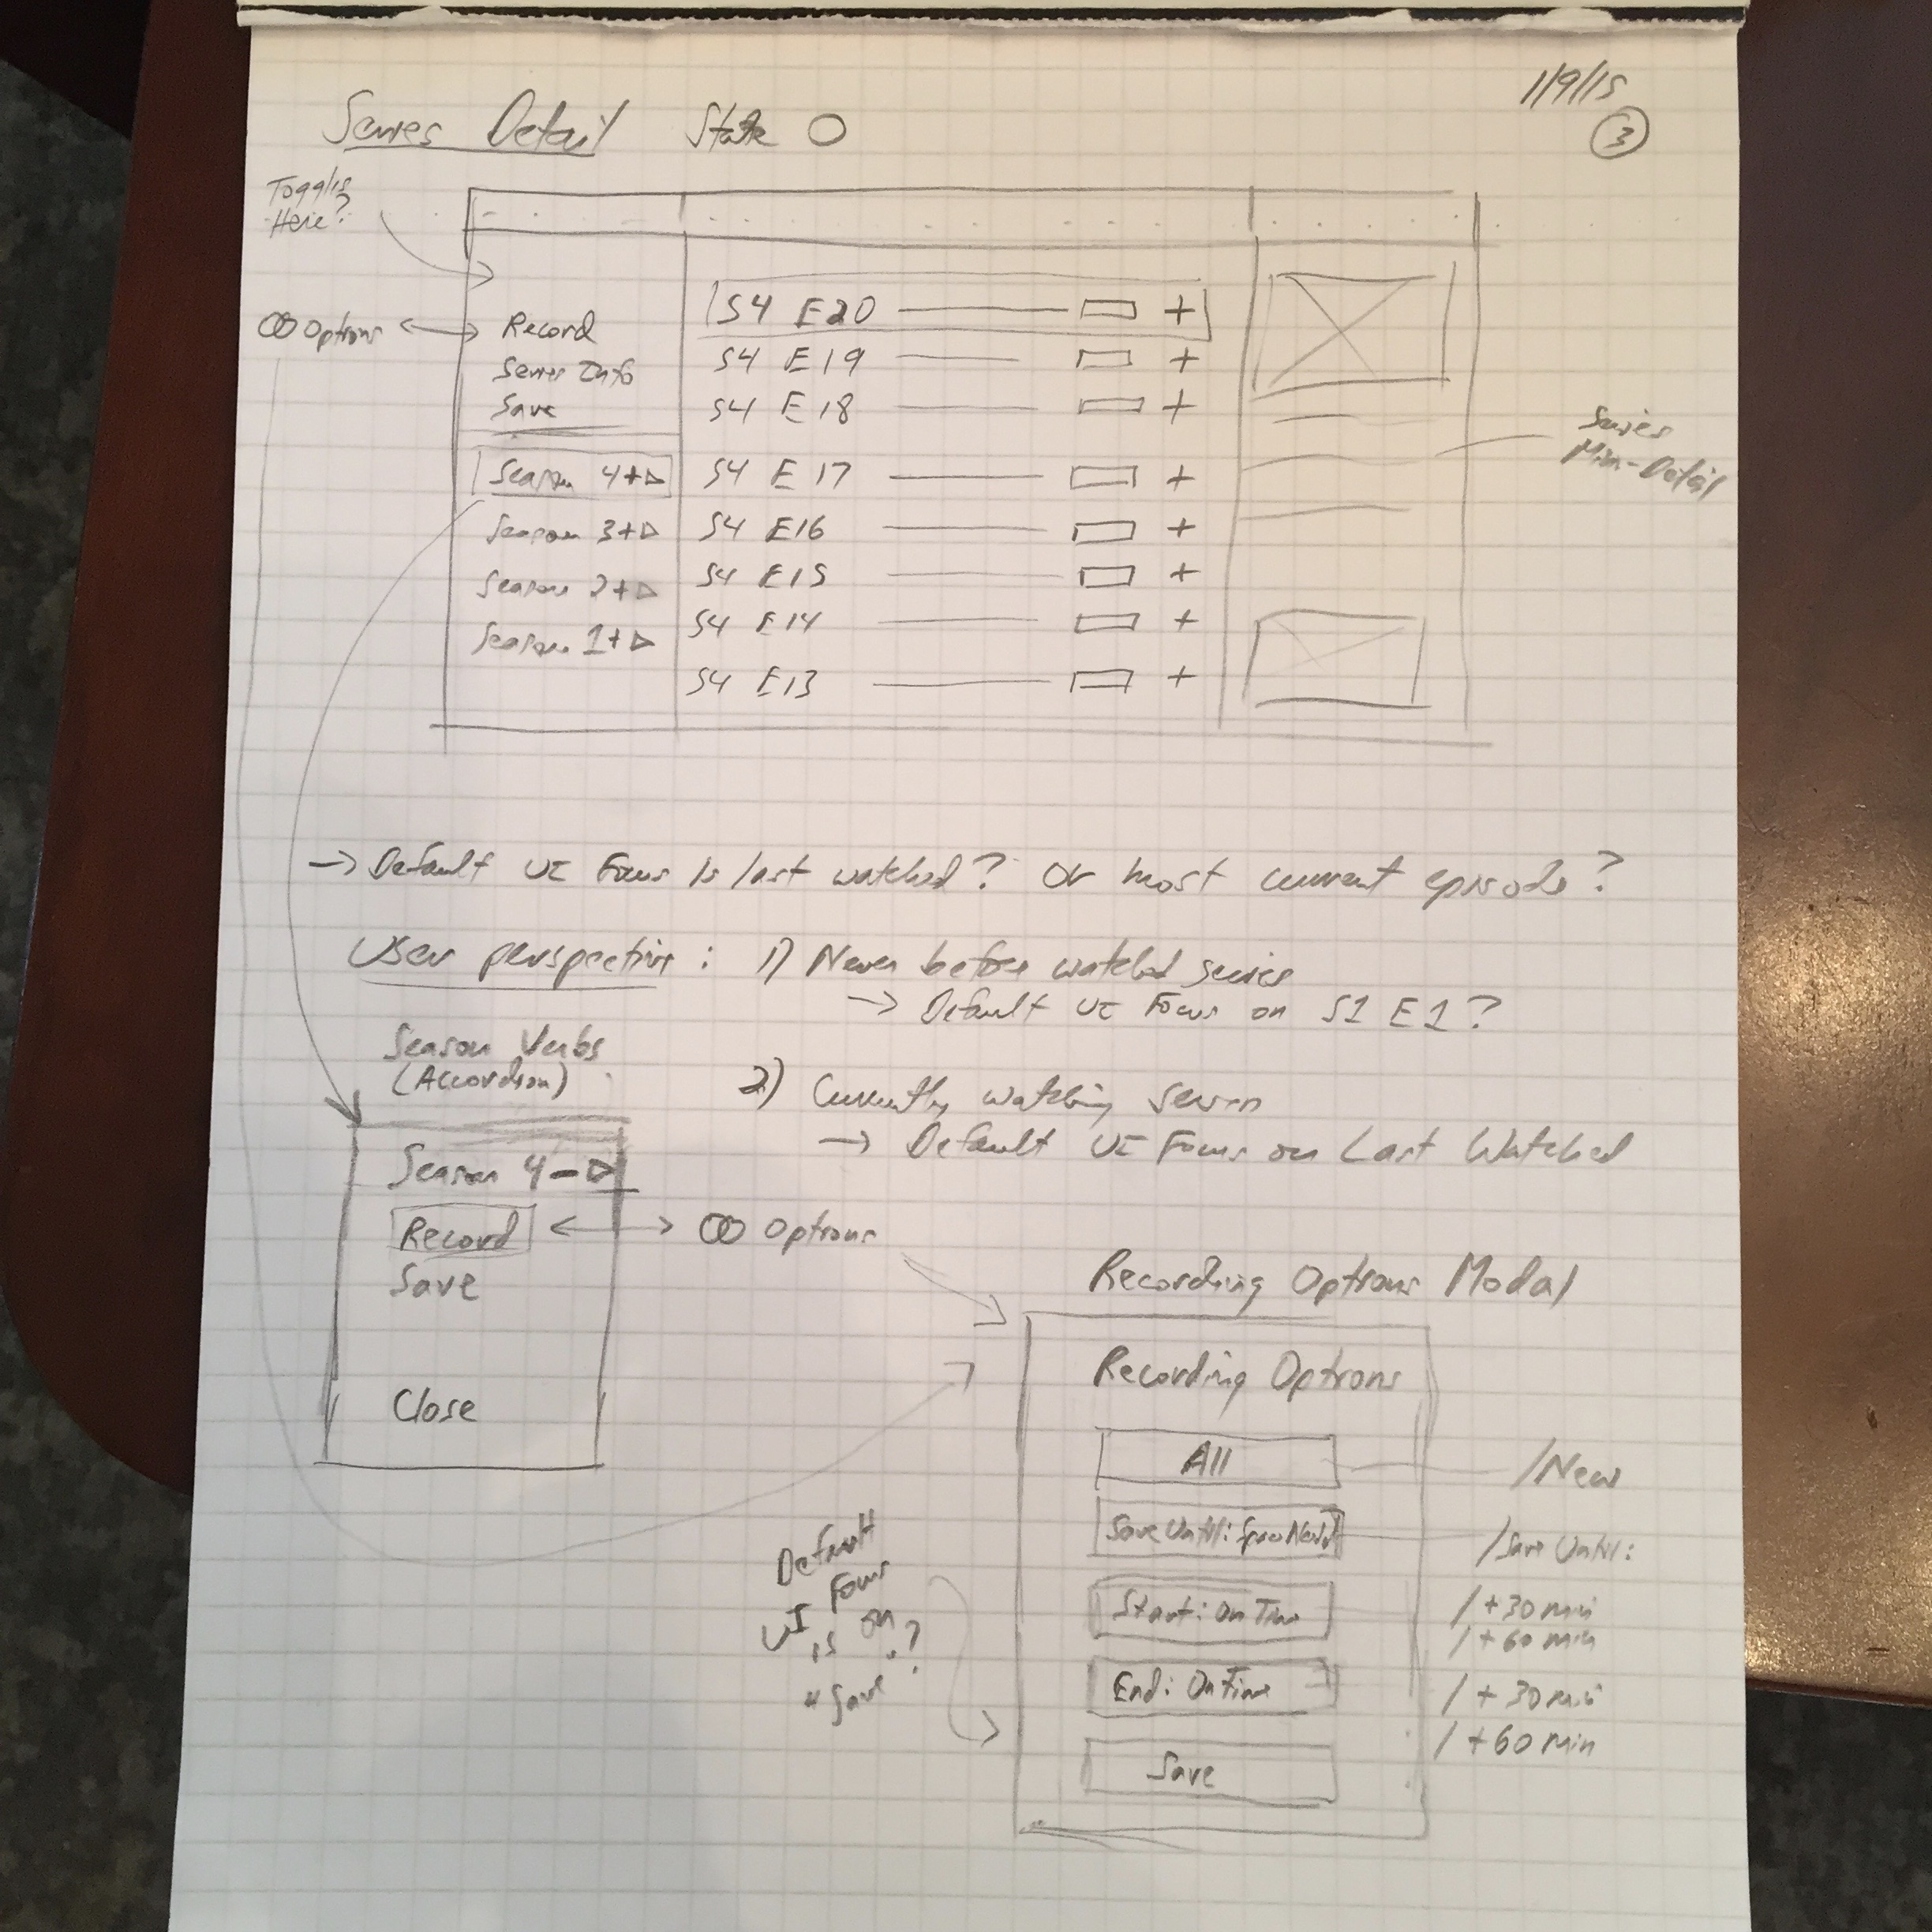 1/9/15
3
Series Detail State O
Toggles
Here?
Options
Record
Series Info
Save
Season 4+▷
Season 3+▷
Season 2+▷
Season 1+▷
S4 E20 +
S4 E19 +
S4 E18 +
S4 E17 +
S4 E16 +
S4 E15 +
S4 E14 +
S4 E13 +
Series
Mini-Detail
→ Default UI Focus is last watched? Or most current episode?
User perspective: 1) Never before watched series
→ Default UI Focus on S1 E1?
2) Currently watching series
→ Default UI Focus on Last Watched
Season Verbs
(Accordion)
Season 4-▷
Record
Save
Close
Options
Recording Options Modal
Recording Options
All
/New
Save Until: Space Need
/Save Until:
Start: On Time
/+30 min
/+60 min
End: On Time
/+30 min
/+60 min
Save
Default
UI Focus
is on
"Save?